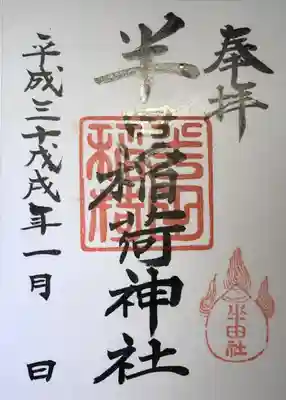 奉拝
半田稲荷神社
平成三十戊戌年一月　日
半田社